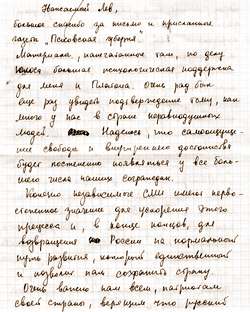 Написаний Лев,
большое спасибо за письмо и присланные
газеты „Псковская губерния".
Материалы, напечатанные там, по делу
большая психологическая поддержка
для меня и Платона. Очень рад был
еще раз увидеть подтверждение тому, как
много у нас в стране неравнодушных
людей. Надеюсь, что самоощущение
свободы и внутреннего достоинства
будет постепенно появляться у все большего
числа наших сограждан.
Конечно независимые СМИ имеют первостепенное
значение для ускорения этого
процесса и, в конце концов, для
возвращения России на нормальный
путь развития, который единственный
и позволит нам сохранить страну.
Очень важно нам всем, патриотам
своей страны, верящим что русский